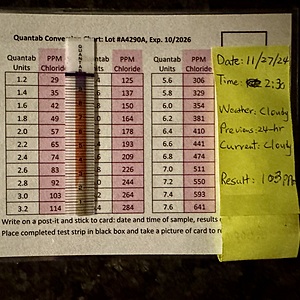 Quantab Conversion Chart: Lot #A4290A, Exp. 10/2026
Quantab Units PPM Chloride PPM Chloride Quantab Units PPM Chloride
1.2 29 125 5.6 306
1.4 35 137 5.8 329
1.6 42 150 6.0 354
1.8 49 164 6.2 381
2.0 57 178 6.4 410
2.2 65 193 6.6 441
2.4 74 209 6.8 474
2.6 83 226 7.0 511
2.8 92 244 7.2 550
3.0 103 264 7.4 593
3.2 114 284 7.6 641
Write on a post-it and stick to card: date and time of sample, results
Place completed test strip in black box and take a picture of card to
QUANTAB
Date: 11/27/24
Time: 2:30
Weather: Cloudy
Previous 24-hr
Current: Cloudy
Result: 103 PPM